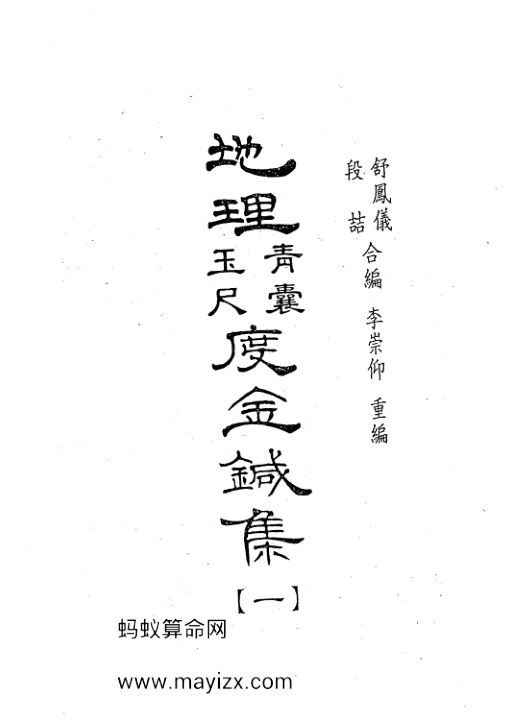 舒鳳儀
段喆
合編 李崇仰 重編
地理
青囊
玉尺
度金鍼集
【一】
蚂蚁算命网
www.mayizx.com